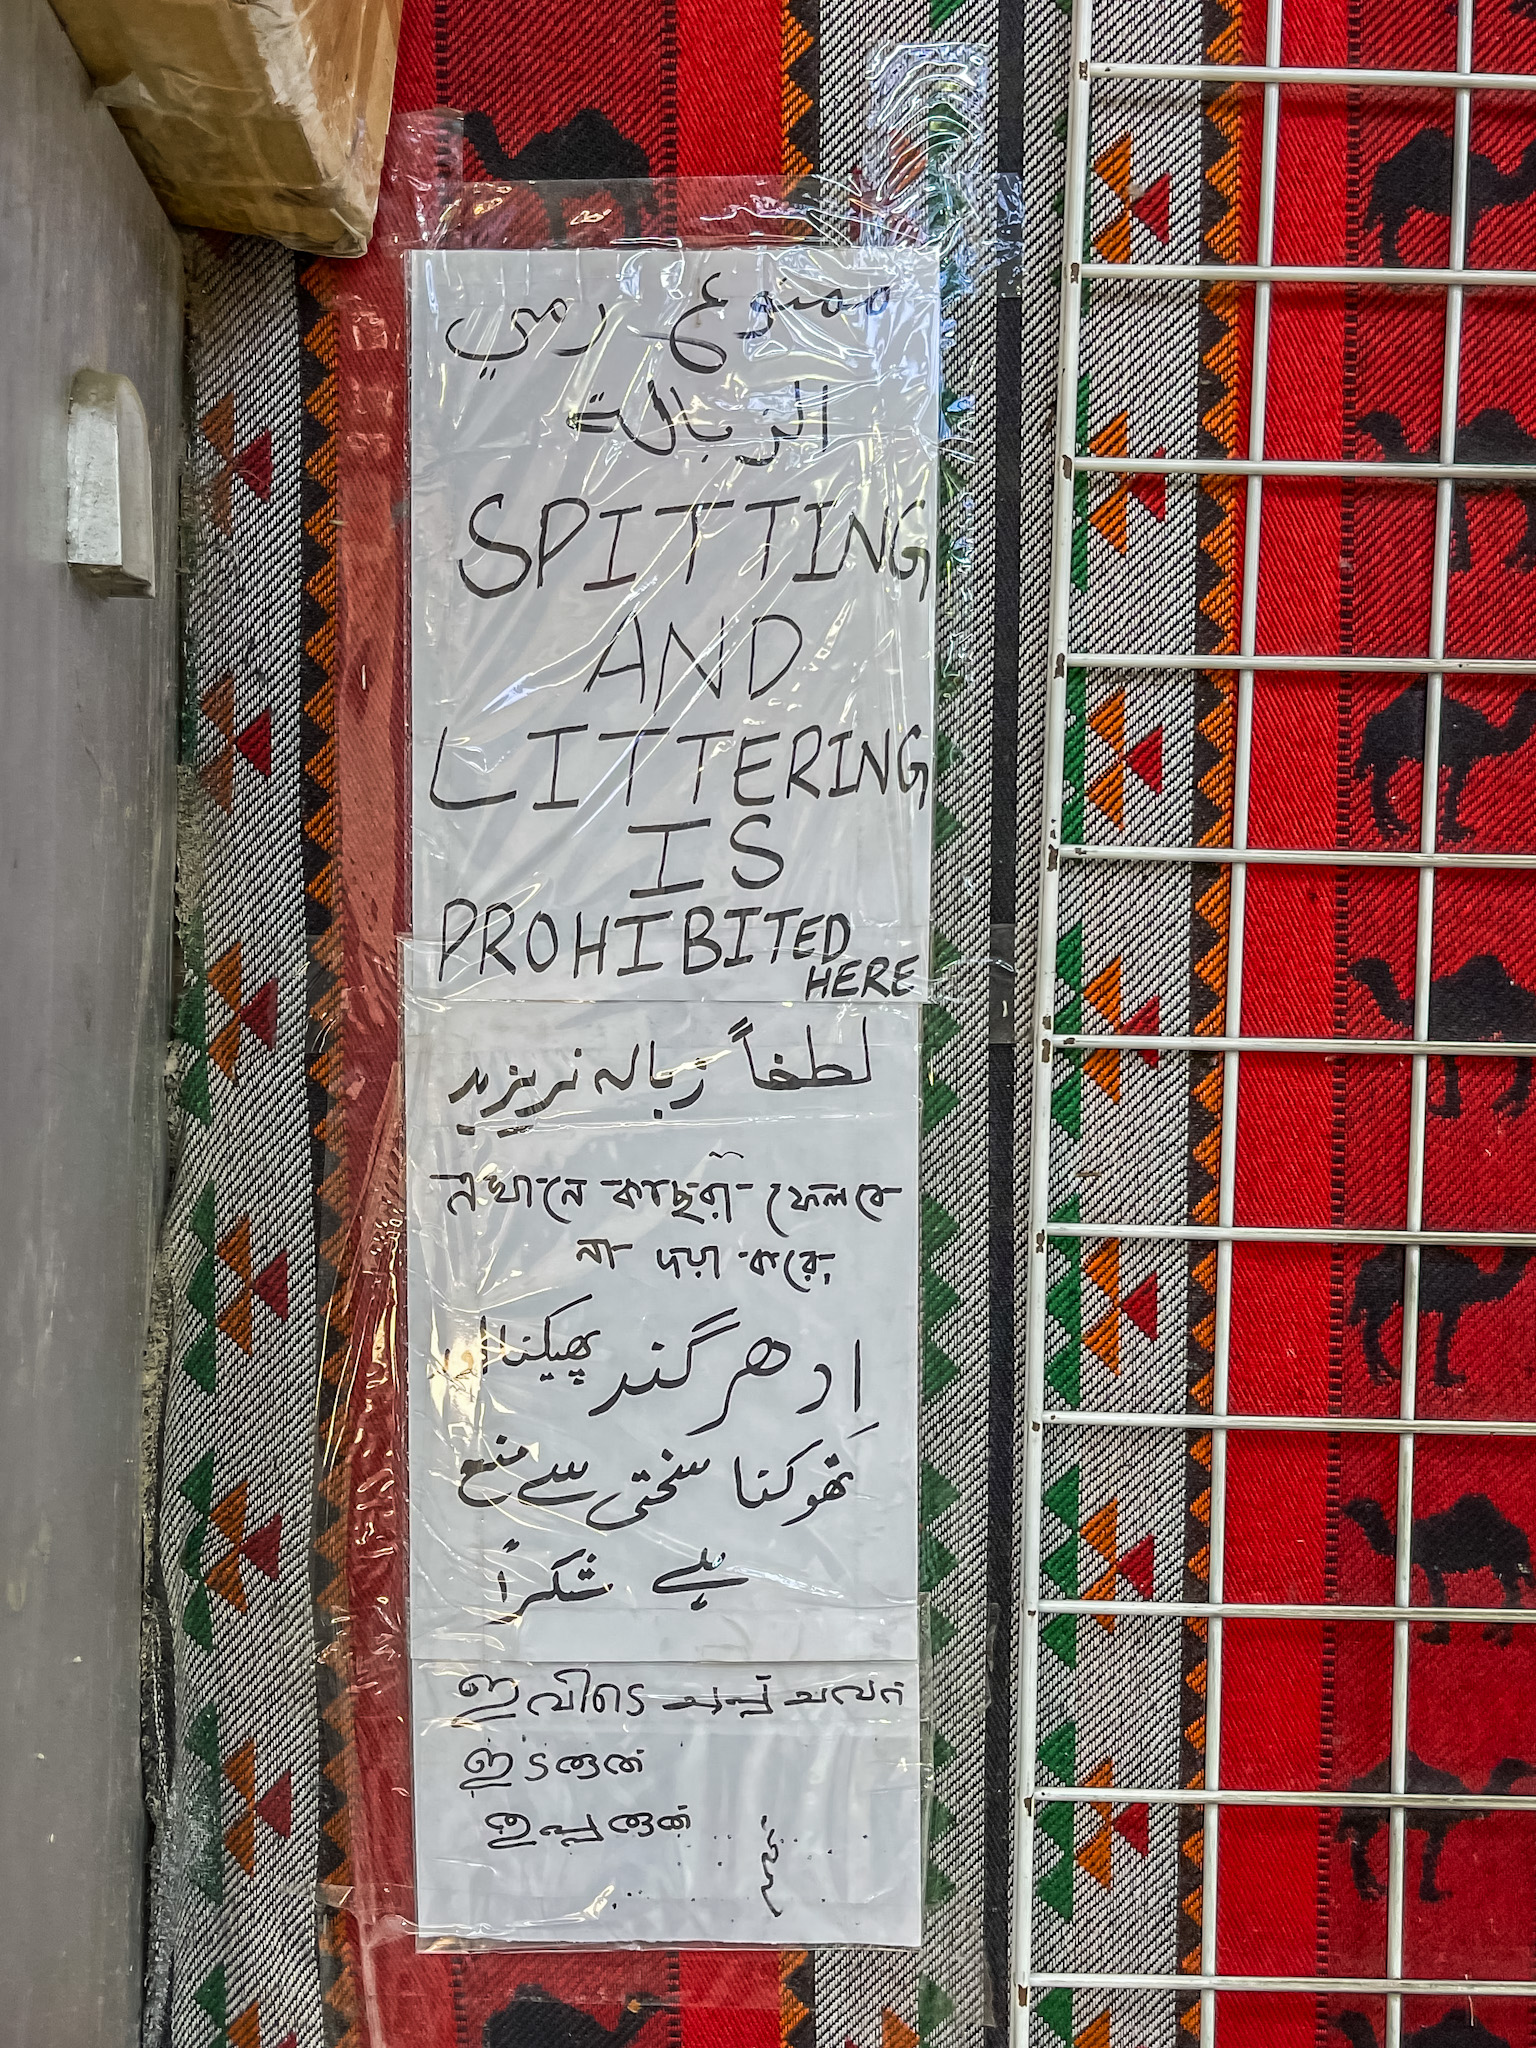 ممنوع رمي
الزبالة
SPITTING
AND
LITTERING
IS
PROHIBITED
HERE
لطفاً زباله نریزید
এখানে কাছরা ফেলবে
না দয়া করে
اِدھر گند پھیکنا
تھوکنا سختی سے منع
ہے شکراً
ഇവിടെ ചപ്പ് ചവറ്
ഇടരുത്
തുപ്പരുത്